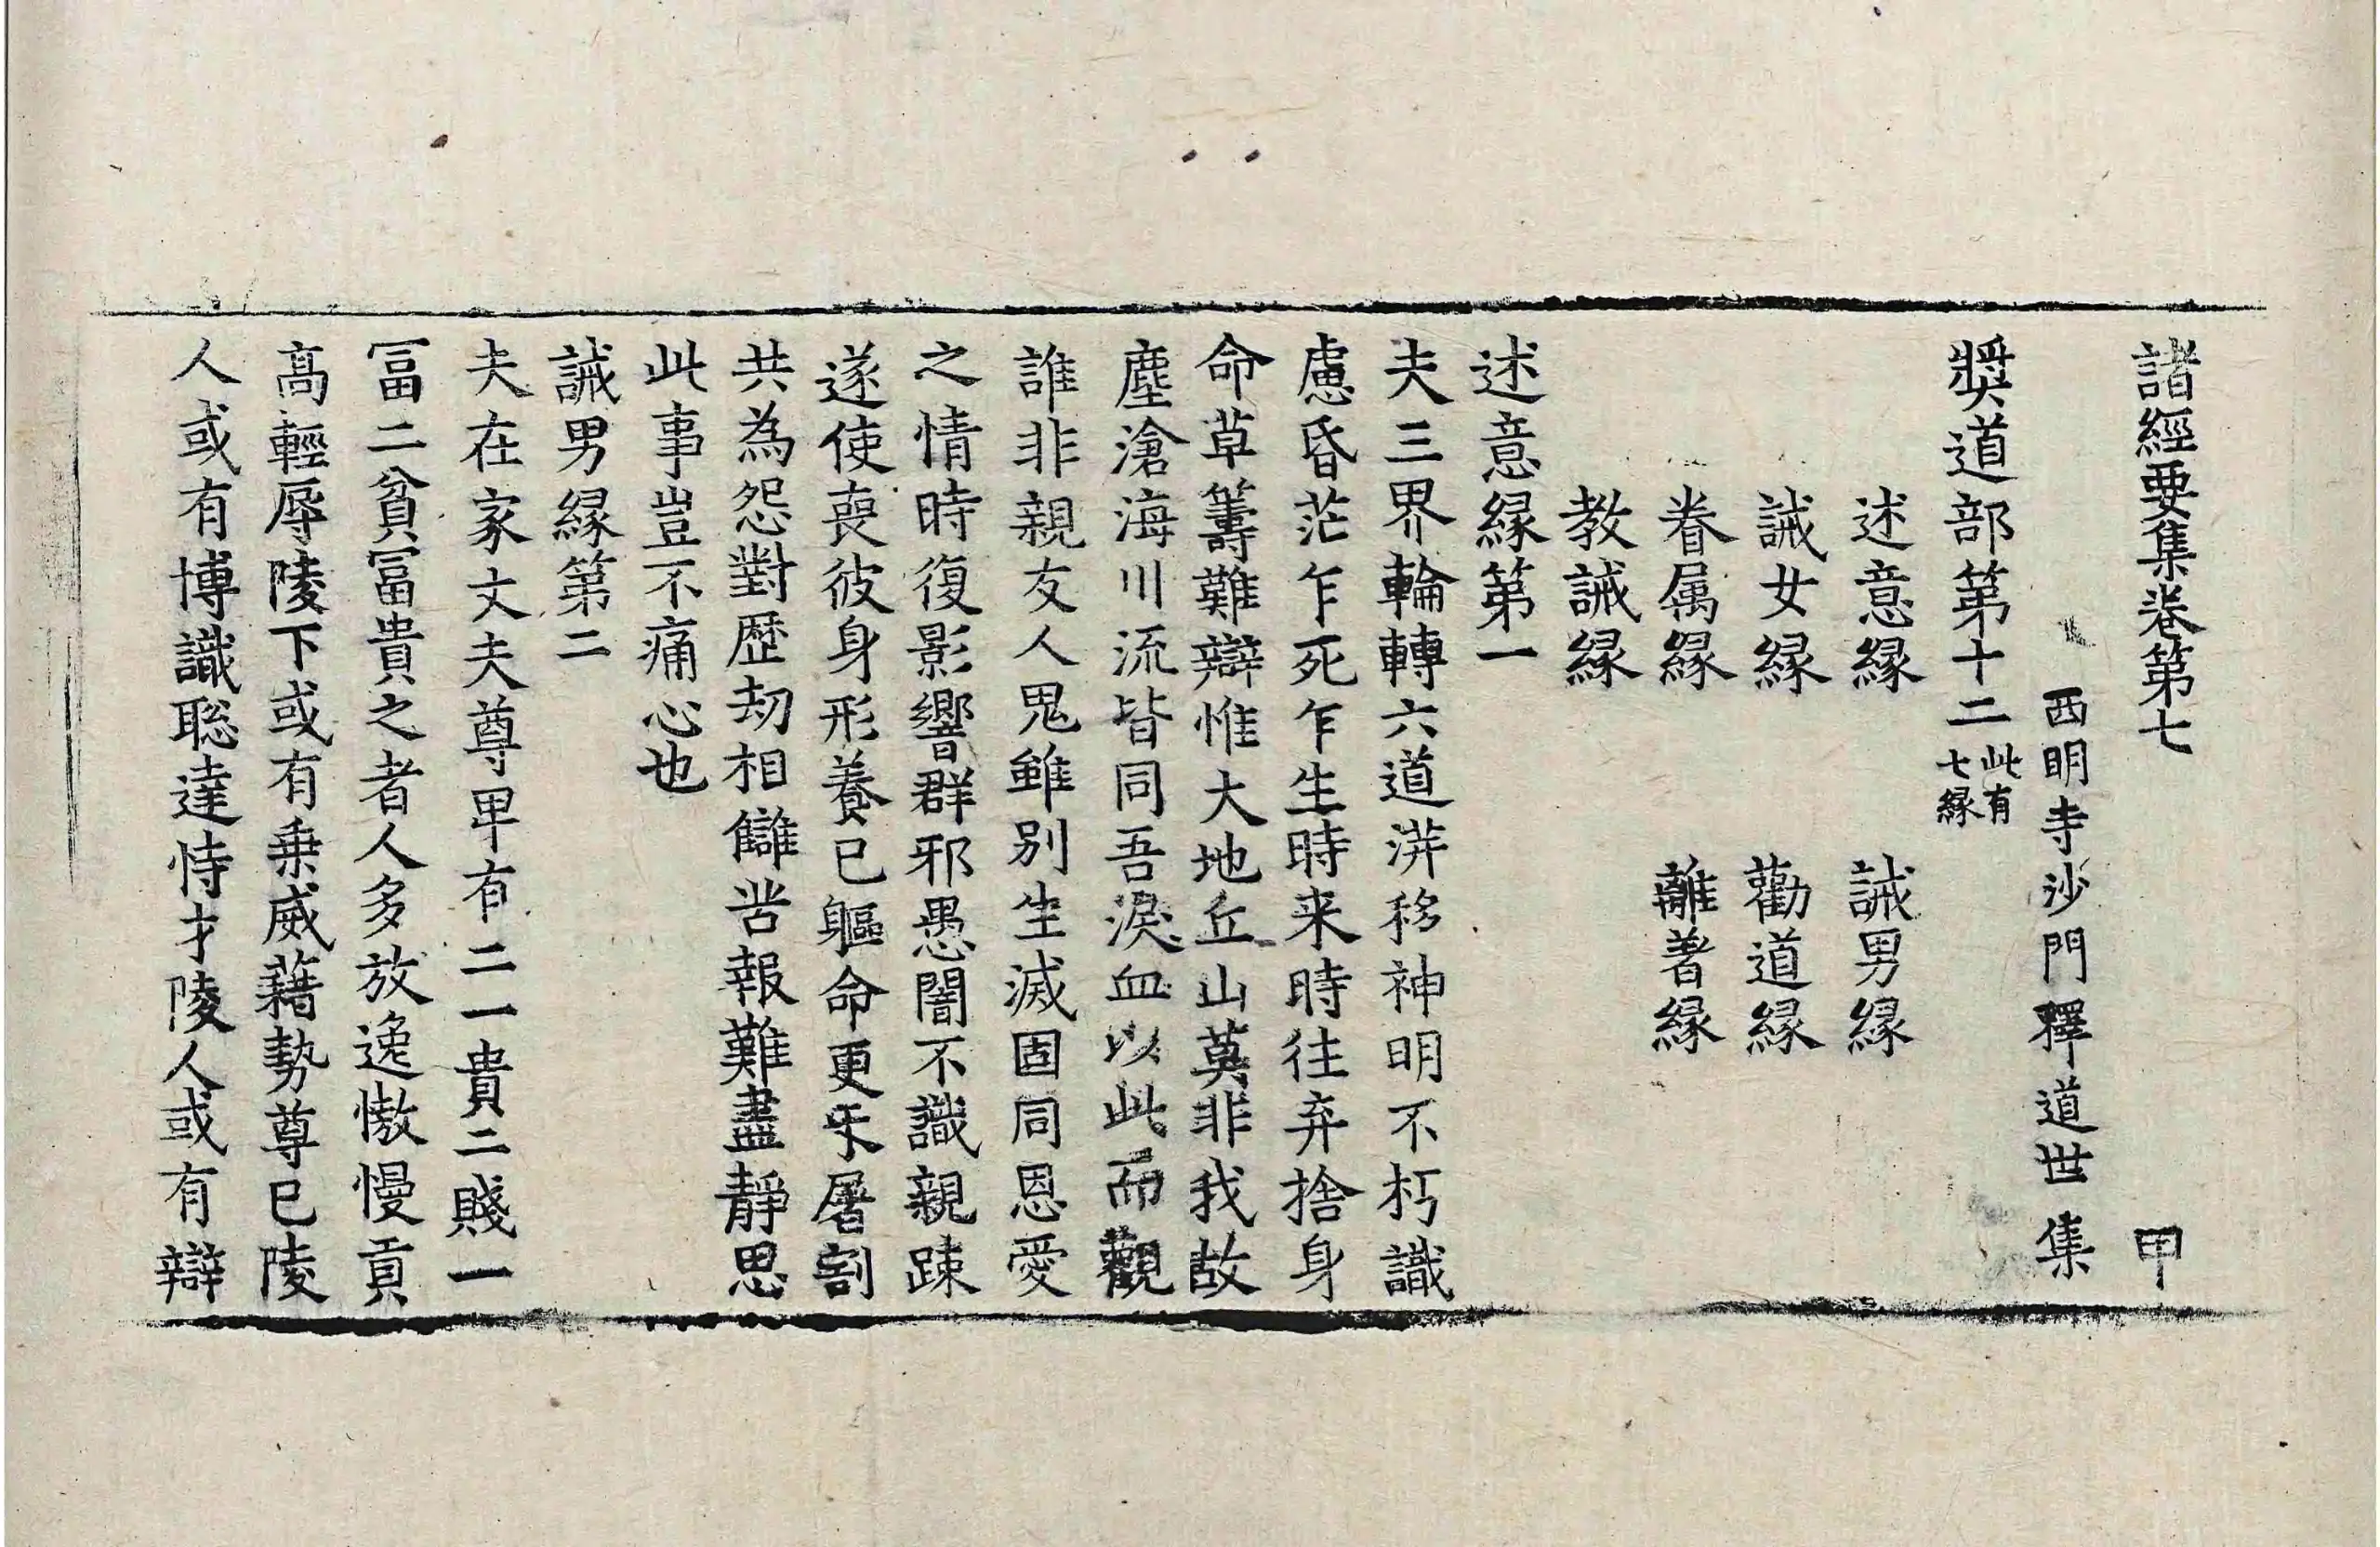 諸經要集卷第七 甲
西明寺沙門釋道世 集
獎道部第十二 此有七緣
述意緣 誡男緣
誡女緣 勸道緣
眷属緣 離著緣
教誡緣
述意緣第一
夫三界輪轉六道漭移神明不朽識
慮昏茫乍死乍生時来時往弃捨身
命草籌難辯惟大地丘山莫非我故
塵滄海川流皆同吾淚血以此而觀
誰非親友人鬼雖別生滅固同恩愛
之情時復影響群邪愚闇不識親踈
遂使喪彼身形養已軀命更㸦屠割
共為怨對歷劫相讎苦報難盡靜思
此事豈不痛心也
誡男緣第二
夫在家丈夫尊卑有二一貴二賤一
冨二貧冨貴之者人多放逸憿慢貢
髙輕辱陵下或有乗威藉勢尊已陵
人或有博識聡達恃才陵人或有辯